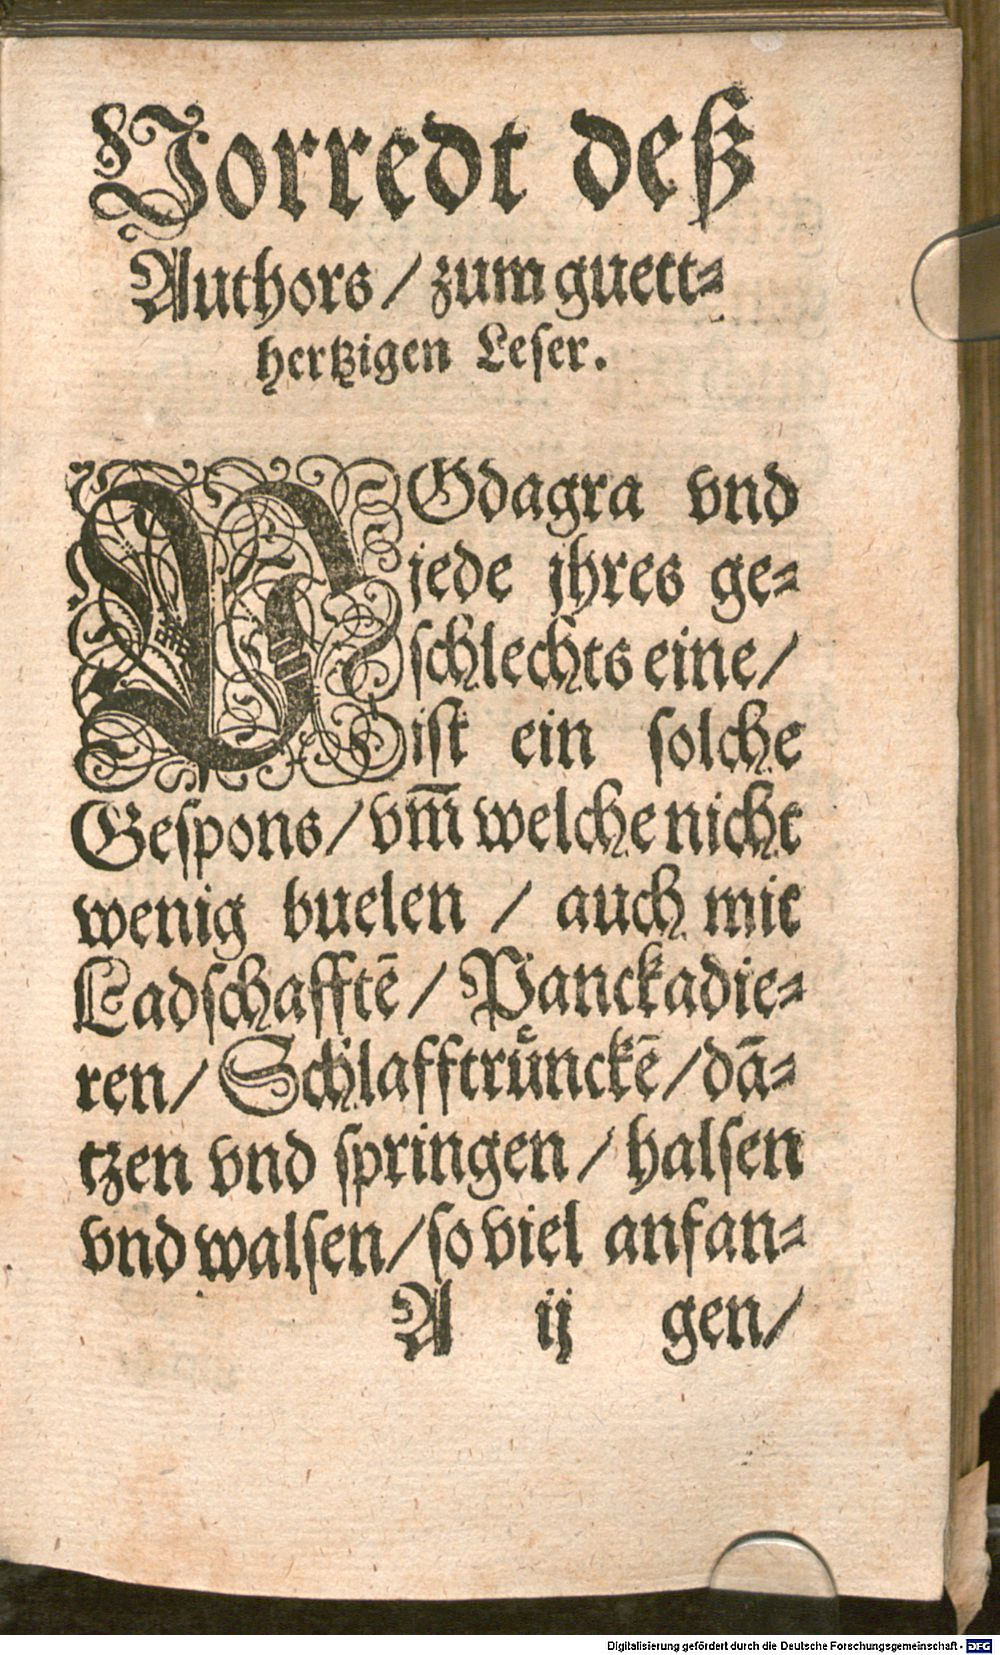 Vorredt deß
Authors / zum guett⸗
hertzigen Leser.
POdagra vnd
jede jhres ge⸗
schlechts eine /
ist ein solche
Gespons / vm̄ welche nicht
wenig buelen / auch mit
Ladschafftē / Panckadie⸗
ren / Schlafftrünckē / dā⸗
tzen vnd springen / halsen
vnd walsen / so viel anfan⸗
A ij gen /
Digitalisierung gefördert durch die Deutsche Forschungsgemeinschaft - DFG